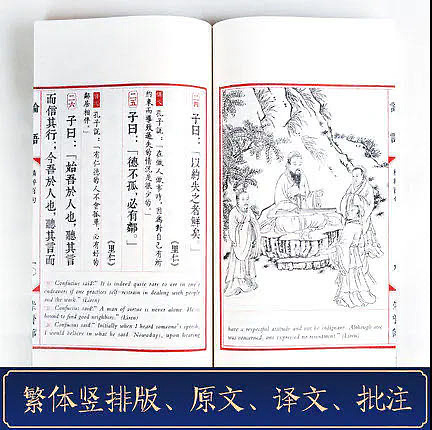 二四 子曰：「以約失之者鮮矣。」
（里仁）
譯文 孔子說：「在做人做事時，因為對自己有所
約束而導致過失的情況是很少的。」
二五 子曰：「德不孤，必有鄰。」
（里仁）
譯文 孔子說：「有仁德的人不會孤單，必有好的
鄰居相伴。」
二六 子曰：「始吾於人也，聽其言
而信其行；今吾於人也，聽其言而
論語
Confucius said:" It is indeed quite rare to err in one's
endeavors if one practices self-restraint in dealing with people
and the work." (Liren)
Confucius said:" A man of virtue is never alone. He is
bound to find good neighbors." (Liren)
Confucius said:" Initially when I heard someone's speech,
I would believe in what he said. Nowadays, upon hearing
論語
have a respectful attitude and not be indignant. Although one
was concerned, one expressed no resentment." (Liren)
繁体竖排版、原文、译文、批注